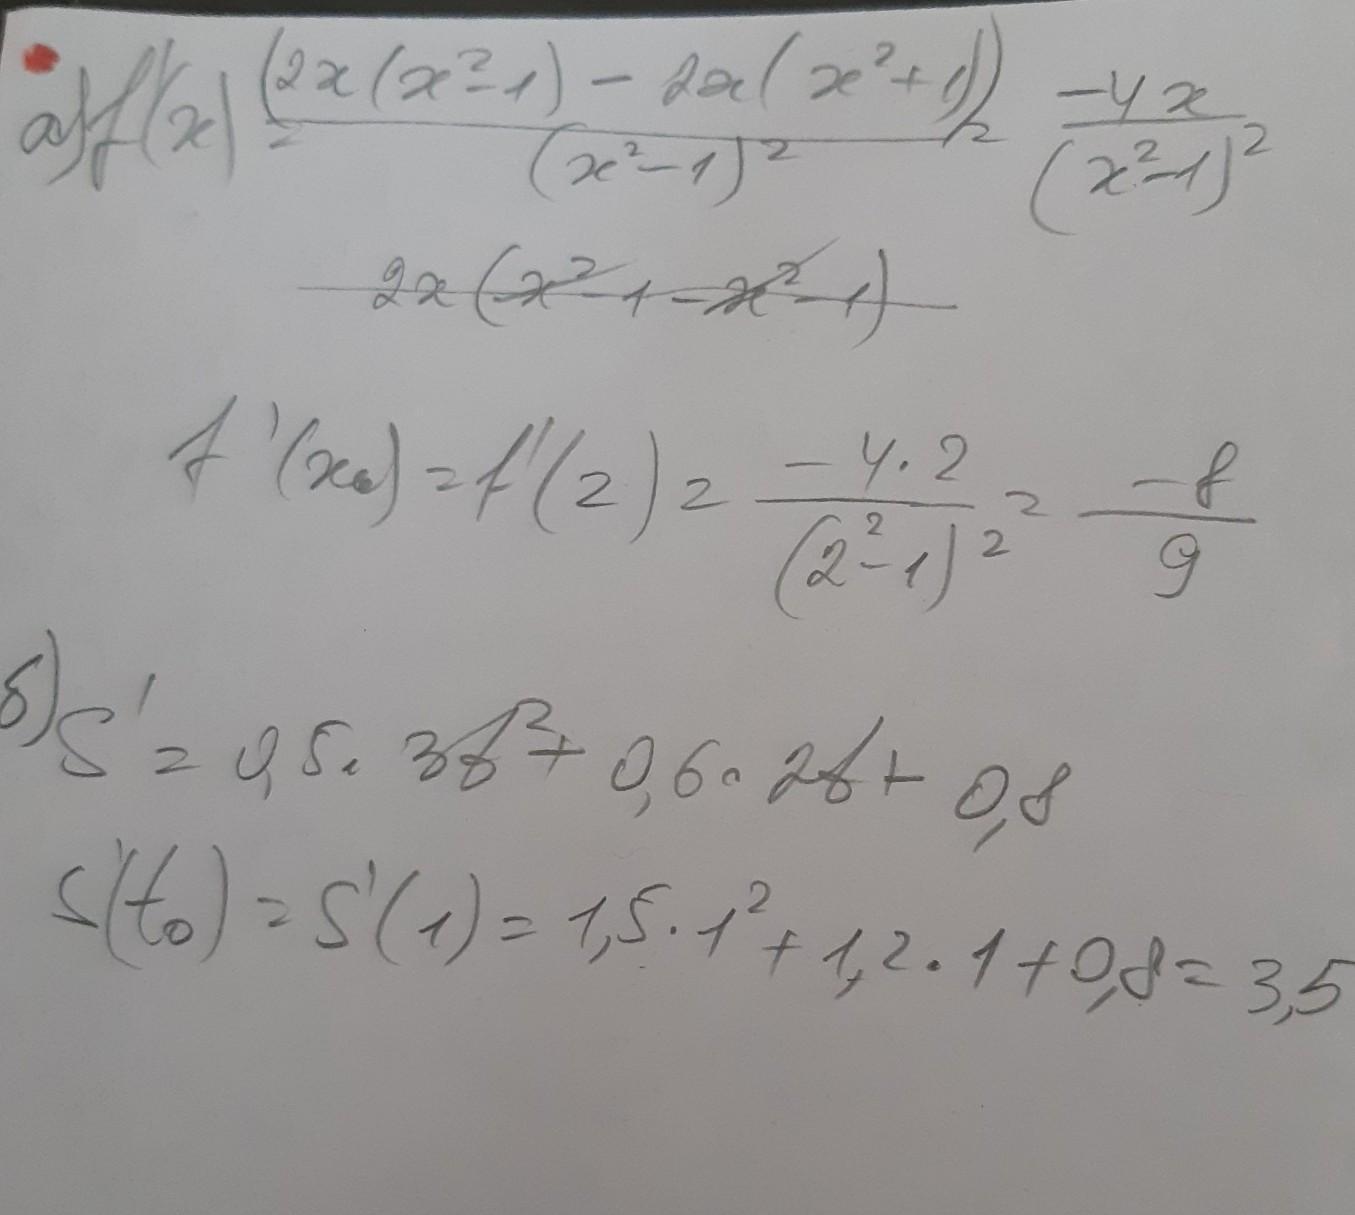 a) f'(x) = (2x(x²-1) - 2x(x²+1)) / (x²-1)² = -4x / (x²-1)²
2x(x²-1-x²-1)
f'(x₀) = f'(2) = -4·2 / (2²-1)² = -8 / 9
б) S' = 0,5·3t²+0,6·2t+0,8
S'(t₀) = S'(1) = 1,5·1²+1,2·1+0,8=3,5